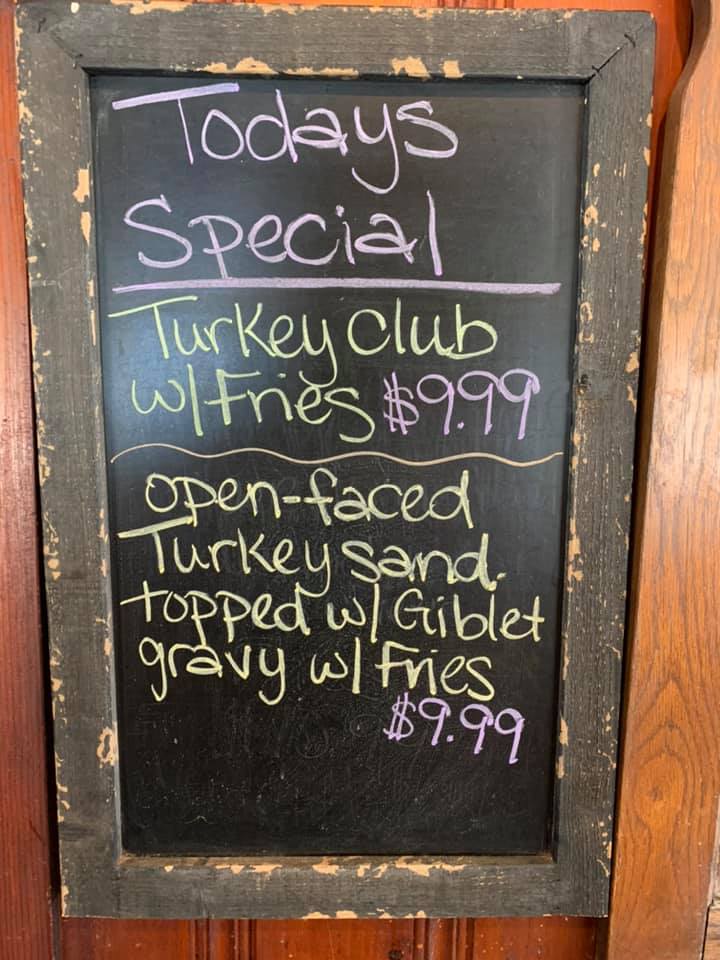 Todays
Special
Turkey Club
w/Fries $9.99
open-faced
Turkey sand.
topped w/ Giblet
gravy w/ Fries
$9.99